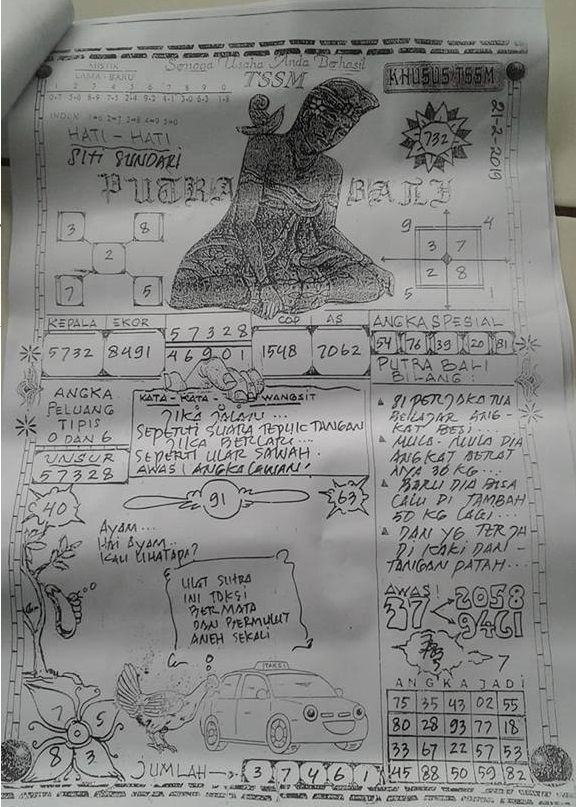 Semoga Usaha Anda Berhasil
MISTIK
LAMA - BARU
TSSM
KHUSUS TSSM
1 2 3 4 5 6 7 8 9 0
INDEK 1=6 2=7 3=8 4=9 5=0
HATI - HATI
SITI SUNDARI
732
21-2-2019
PUTRA BALI
3 8
2
7 5
9 4
3 7
2 8
5 1
KEPALA EKOR
5732 8491
57328
46901
COP AS
1548 7062
ANGKA SPESIAL
54 76 39 20 81
ANGKA
PELUANG
TIPIS
0 DAN 6
UNSUR
57328
KATA - KATA - WANGSIT
JIKA JALAN...
SEPERTI SUARA TEPUK TANGAN
JIKA BERLARI...
SEPERTI ULAR SAWAH.
AWAS! ANGKA LAWAN!
PUTRA BALI
BILANG:
SI PERJOKO TUA
BELAJAR ANG-
KAT BESI...
MULA-MULA DIA
ANGKAT BERAT
NYA 30 KG...
BARU DIA BISA
LALU DI TAMBAH
50 KG LAGI...
DAN YG TERJA
DI KAKI DAN
TANGAN PATAH...
40
91
63
AYAM...
HAI AYAM..
KAU LIHAT APA?
ULAT SUTRA
INI TOKSI
BERMATA
DAN BERMULUT
ANEH SEKALI
AWAS!
37 2058
9461
7
TAKSI
7 5
8 3
ANGKA JADI
75 35 43 02 55
80 28 93 77 18
33 67 22 57 53
45 88 50 59 82
JUMLAH 3 7 4 6 1